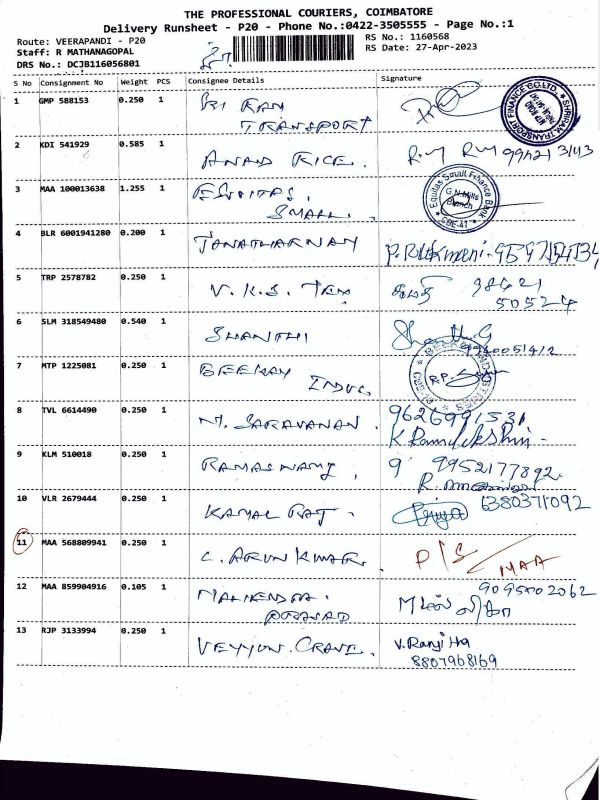 THE PROFESSIONAL COURIERS, COIMBATORE
Delivery Runsheet - P20 - Phone No.:0422-3505555 - Page No.:1
Route: VEERAPANDI - P20
RS No.: 1160568
Staff: R MATHANAGOPAL
RS Date: 27-Apr-2023
DRS No.: DCJB116056801
S No Consignment No Weight PCS Consignee Details Signature
1 GMP 588153 0.250 1 SRI RAM
TRANSPORT
SHRIRAM TRANSPORT FINANCE CO.LTD.
2 KDI 541929 0.585 1 ANAND RICE.
3 MAA 100013638 1.255 1 EQUITAS.
SMALL.
Equitas Small Finance Bank
G.N.Mills
Branch
CBE-47
4 BLR 6001941280 0.200 1
5 TRP 2578782 0.250 1 V.K.S. TEX
98421
50524
6 SLM 318549480 0.540 1 SHANTHI
Shanthi.G
7 MTP 1225081 0.250 1 BEEKAY
INDUS.
8 TVL 6614490 0.250 1 M. SARAVANAN.
9626991531
9 KLM 510018 0.250 1 RAMASWAMY,
9952177892
10 VLR 2679444 0.250 1 KAMAL RAJ.
Priya 6380371092
11 MAA 568809941 0.250 1 C. ARUN KUMAR.
P/S/MAA
12 MAA 859904916 0.105 1 MAHENDRA.
PRASAD
9095002062
13 RJP 3133994 0.250 1 VEYYON. CRANE.
V. Ranjitha
8807968169